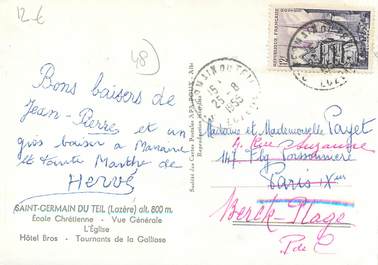 12 €
48
Bons baisers de
Jean-Pierre et un
gros baiser a Manaine
et Tante Marthe de
Hervé
SAINT-GERMAIN DU TEIL (Lozère) alt. 800 m.
École Chrétienne - Vue Générale
L'Église
Hôtel Bros - Tournants de la Galliase
Société des Cartes Postales APA-POUX - Albi
REPUBLIQUE FRANÇAISE
12f
POSTES
25 - 8
1955
Madame et Mademoiselle Payet
4, Rue Suzanne
147 Fbg Poissonnière
Paris X
Berck-Plage
P. de C